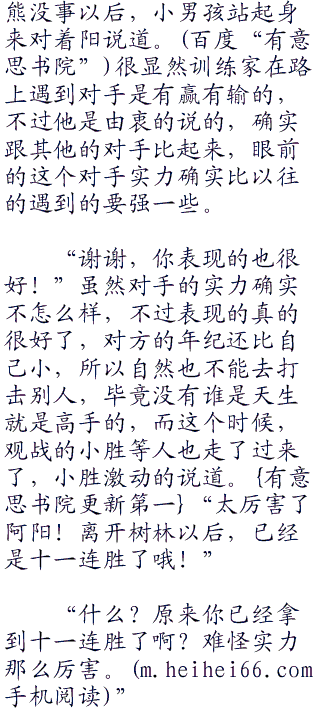 熊没事以后，小男孩站起身
来对着阳说道。(百度“有意
思书院”)很显然训练家在路
上遇到对手是有赢有输的，
不过他是由衷的说的，确实
跟其他的对手比起来，眼前
的这个对手实力确实比以往
的遇到的要强一些。
“谢谢，你表现的也很
好！”虽然对手的实力确实
不怎么样，不过表现的真的
很好了，对方的年纪还比自
己小，所以自然也不能去打
击别人，毕竟没有谁是天生
就是高手的，而这个时候，
观战的小胜等人也走了过来
了，小胜激动的说道。{有意
思书院更新第一}“太厉害了
阿阳！离开树林以后，已经
是十一连胜了哦！”
“什么？原来你已经拿
到十一连胜了啊？难怪实力
那么厉害。(m.heihei66.com
手机阅读)”